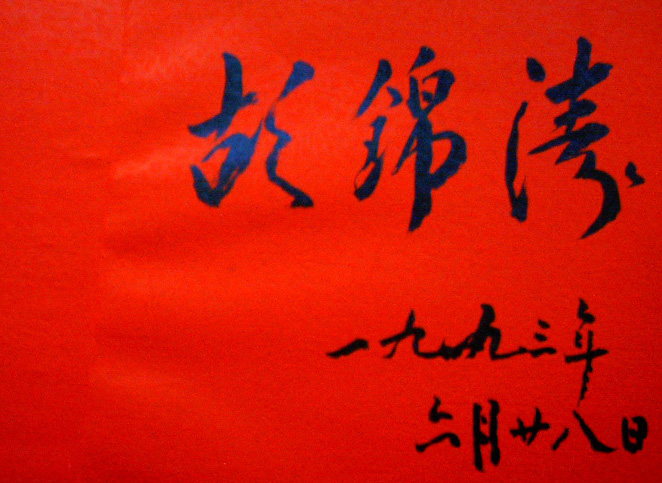 胡錦濤
一九九三年
六月廿八日